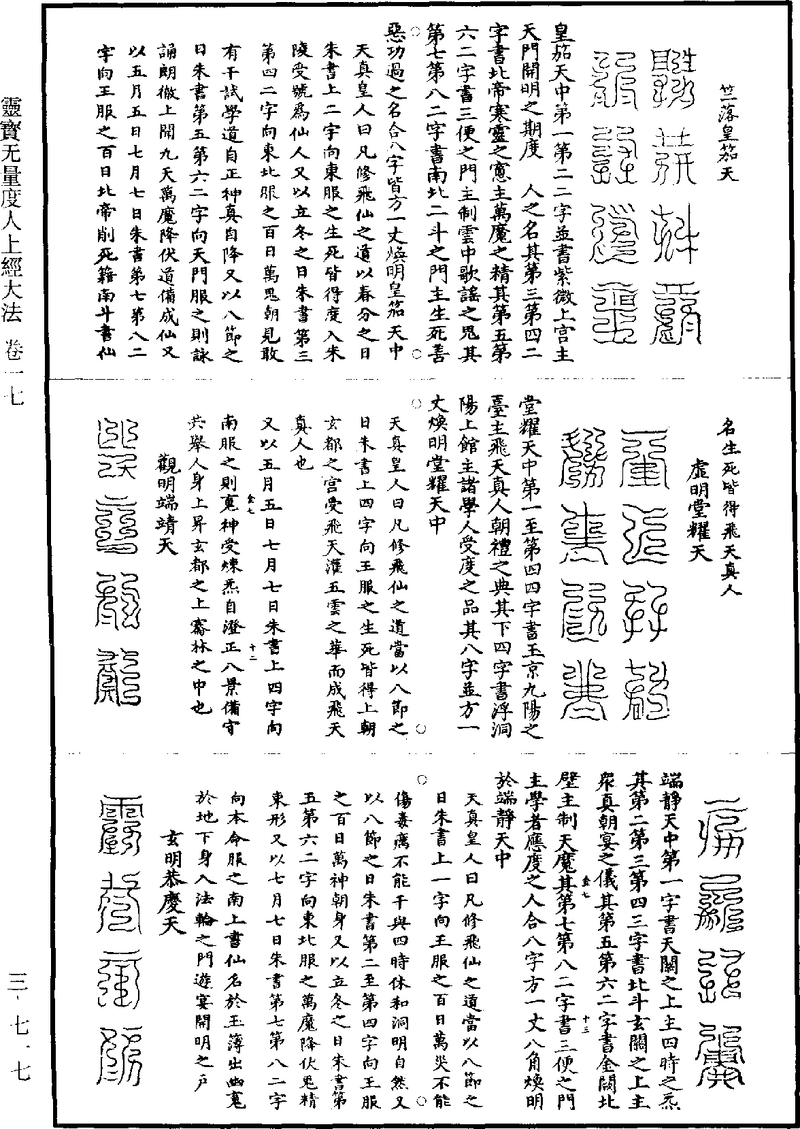 竺落皇笳天
皇笳天中第一第二二字並書紫微上宮主
天門開明之期度　人之名其第三第四二
字書北帝寒靈之室主萬魔之精其第五第
六二字書三便之門主制雲中歌謠之鬼其
第七第八二字書南北二斗之門主生死善
惡功過之名合八字皆方一丈煥明皇笳天中
天真皇人曰凡修飛仙之道以春分之日
朱書上二字向東服之生死皆得度入朱
陵受號為仙人又以立冬之日朱書第三
第四二字向東北服之百日萬鬼朝見敢
有干試學道自正神真自降又以八節之
日朱書第五第六二字向天門服之則詠
誦朗徹上聞九天萬魔降伏道備成仙又
以五月五日七月七日朱書第七第八二
字向王服之百日北帝削死籍南斗書仙
名生死皆得飛天真人
虛明堂耀天
堂耀天中第一至第四四字書玉京九陽之
臺主飛天真人朝禮之典其下四字書浮洞
陽上館主諸學人受度之品其八字並方一
丈煥明堂耀天中
天真皇人曰凡修飛仙之道當以八節之
日朱書上四字向王服之生死皆得上朝
玄都之宮受飛天灌五雲之華而成飛天
真人也
又以五月五日七月七日朱書上四字向
南服之則䰟神受煉炁自澄正八景備守
共舉人身上昇玄都之上騫林之中也
觀明端靖天
端靜天中第一字書天關之上主四時之炁
其第二第三第四三字書北斗玄關之上主
眾真朝宴之儀其第五第六二字書金闕北
壁主制天魔其第七第八二字書三便之門
主學者應度之人合八字方一丈八角煥明
於端靜天中
天真皇人曰凡修飛仙之道當以八節之
日朱書上一字向王服之百日萬災不能
傷毒癘不能干與四時休和洞明自然又
以八節之日朱書第二至第四字向王服
之百日萬神朝身又以立冬之日朱書第
五第六二字向東北服之萬魔降伏鬼精
束形又以七月七日朱書第七第八二字
向本命服之南上書仙名於玉簿出幽䰟
於地下身入法輪之門遊宴開明之戶
玄明恭慶天
靈寶无量度人上經大法　卷一七
三·七一七